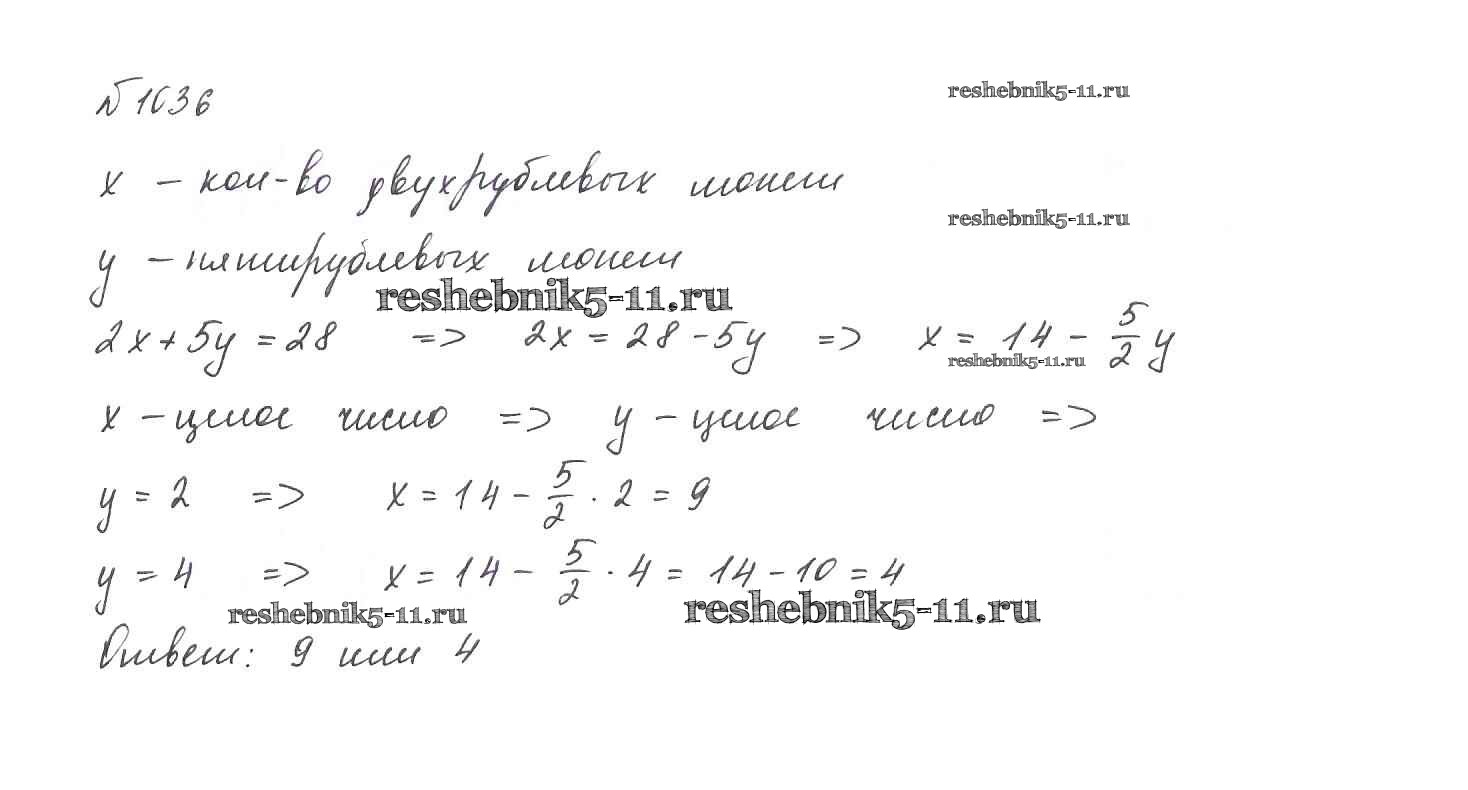 № 1036
reshebnik5-11.ru
x – кол-во двухрублевых монет
reshebnik5-11.ru
y – пятирублевых монет
reshebnik5-11.ru
2x + 5y = 28 => 2x = 28 - 5y => x = 14 - 5/2 y
reshebnik5-11.ru
x – целое число => y – целое число =>
y = 2 => x = 14 - 5/2 · 2 = 9
y = 4 => x = 14 - 5/2 · 4 = 14 - 10 = 4
reshebnik5-11.ru
reshebnik5-11.ru
Ответ: 9 или 4